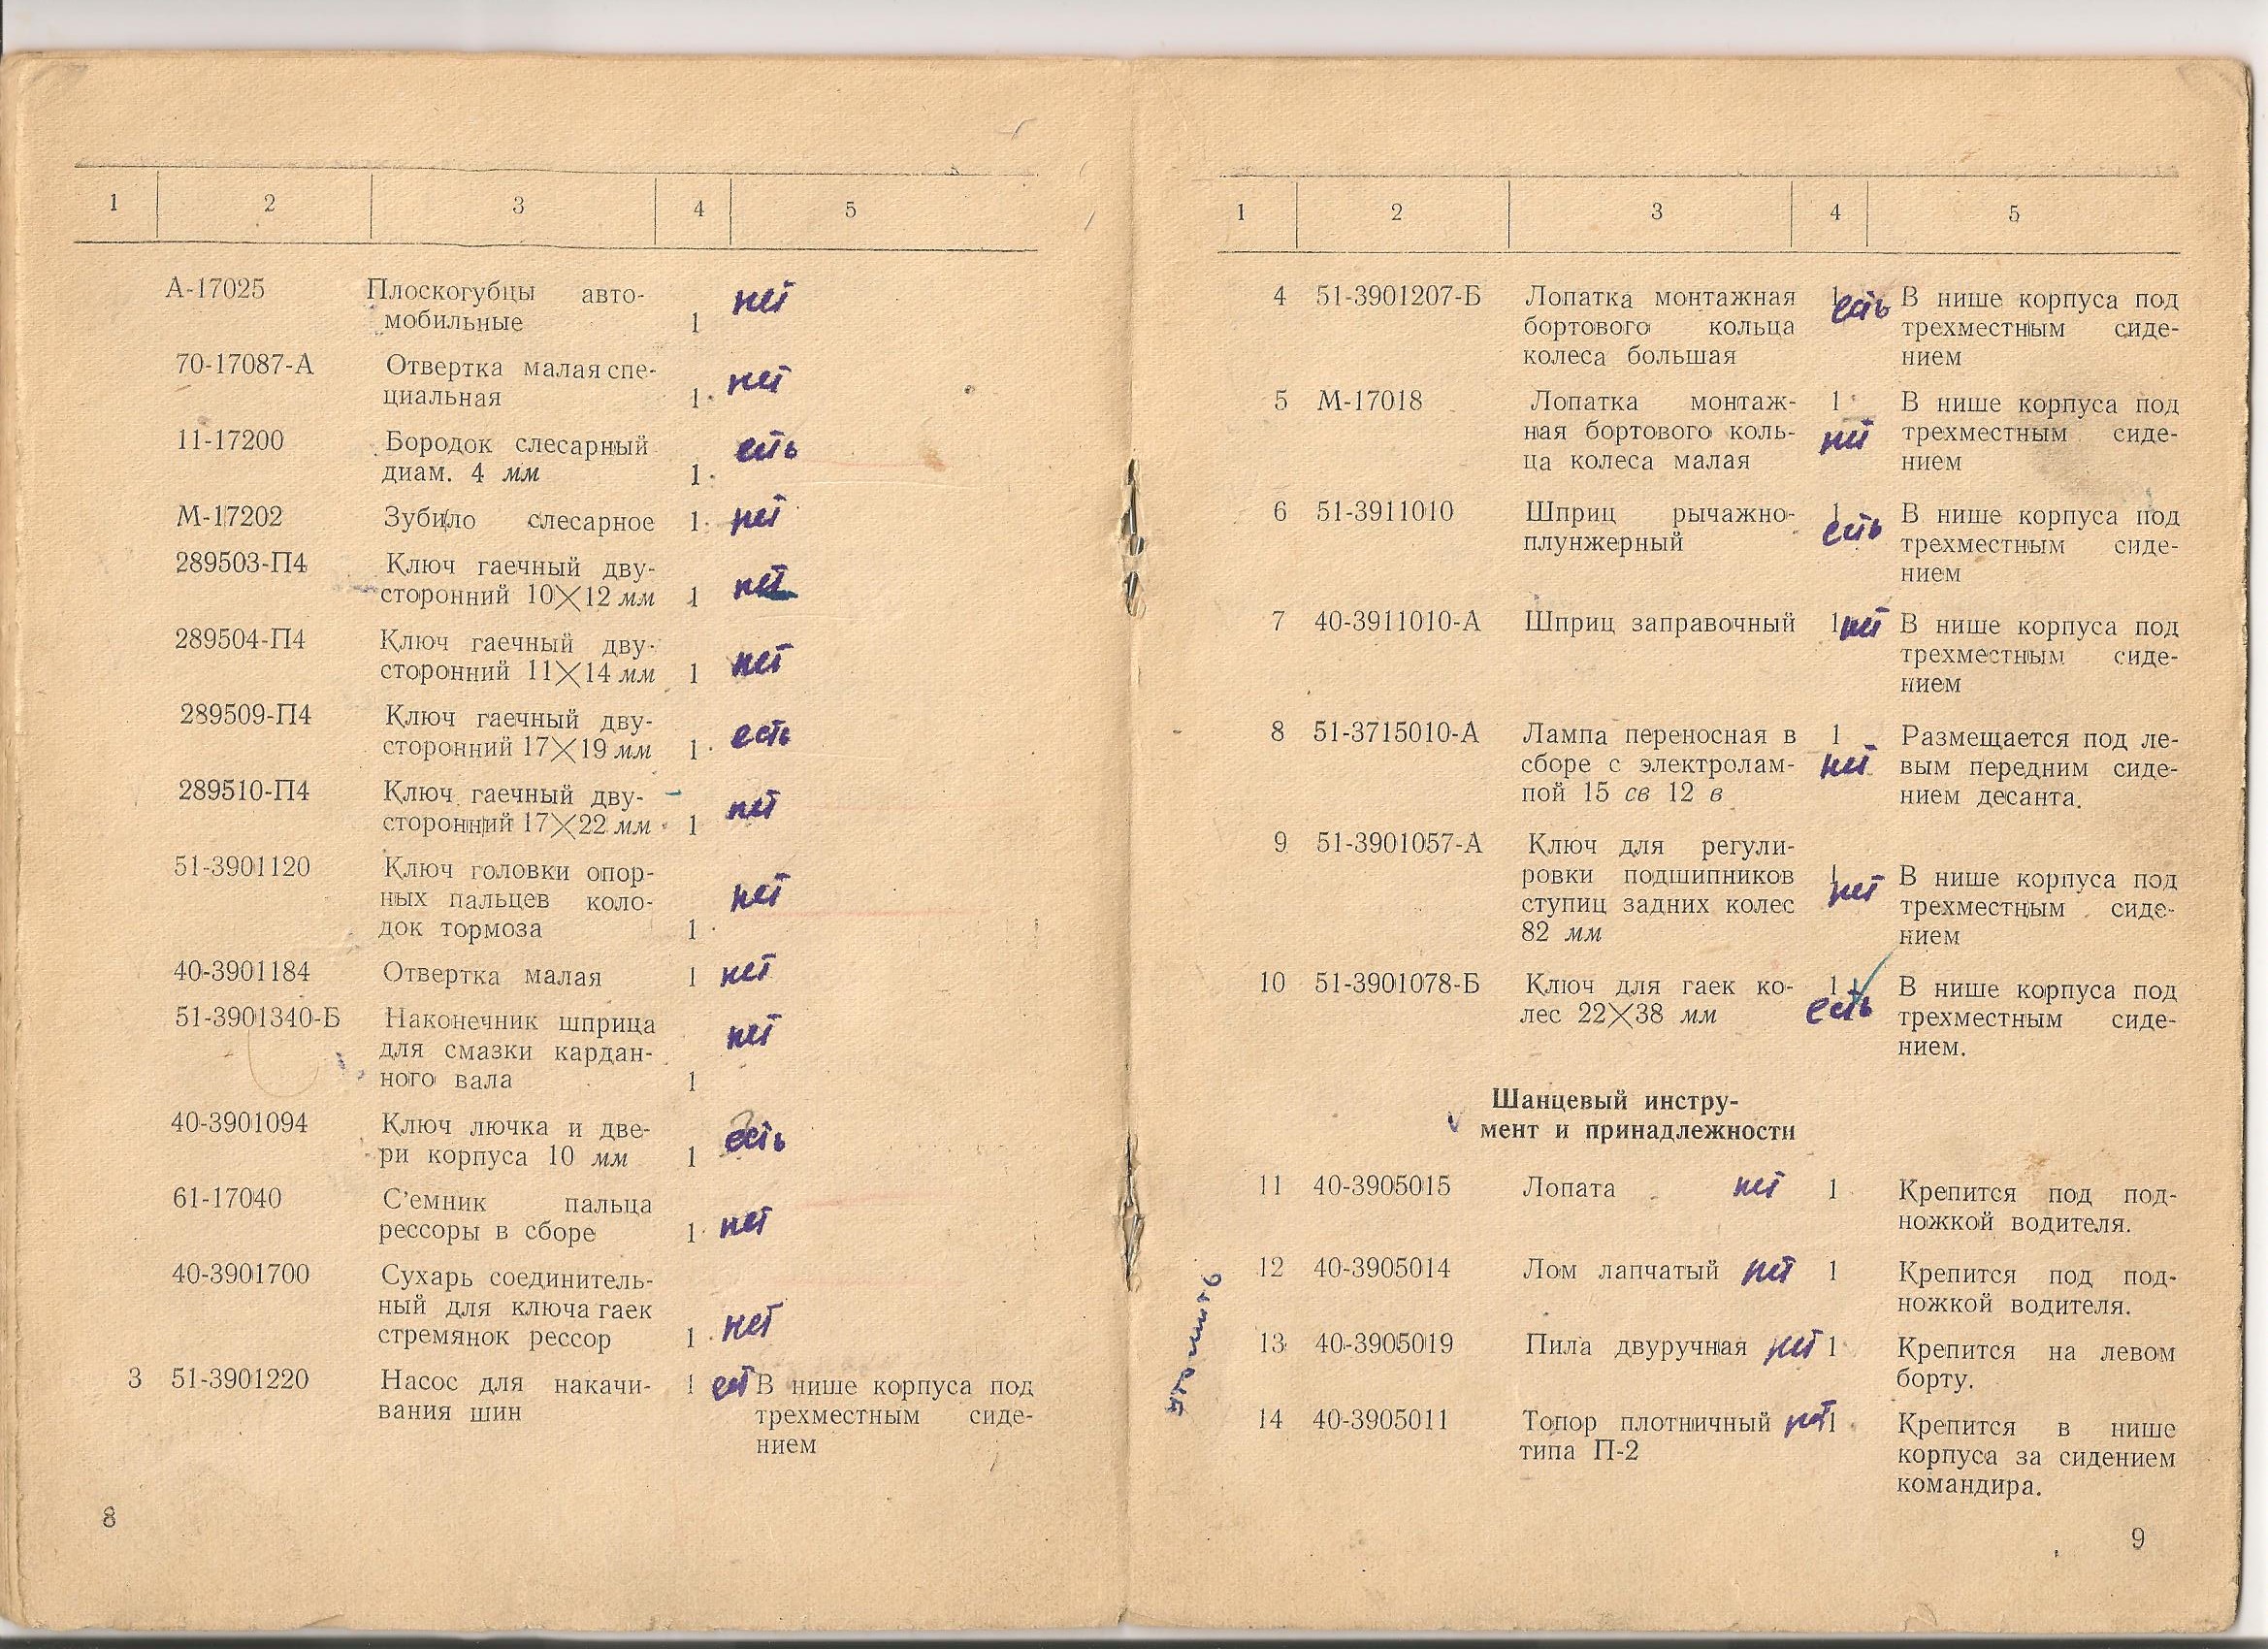 1 2 3 4 5
А-17025 Плоскогубцы авто- нет
мобильные 1
70-17087-А Отвертка малая спе- нет
циальная 1
11-17200 Бородок слесарный есть
диам. 4 мм 1
М-17202 Зубило слесарное 1 нет
289503-П4 Ключ гаечный дву-
сторонний 10×12 мм 1 нет
289504-П4 Ключ гаечный дву-
сторонний 11×14 мм 1 нет
289509-П4 Ключ гаечный дву-
сторонний 17×19 мм 1 есть
289510-П4 Ключ гаечный дву-
сторонний 17×22 мм 1 нет
51-3901120 Ключ головки опор-
ных пальцев коло- нет
док тормоза 1
40-3901184 Отвертка малая 1 нет
51-3901340-Б Наконечник шприца
для смазки кардан- нет
ного вала 1
40-3901094 Ключ лючка и две- есть
ри корпуса 10 мм 1
61-17040 С’емник пальца
рессоры в сборе 1 нет
40-3901700 Сухарь соединитель-
ный для ключа гаек
стремянок рессор 1 нет
3 51-3901220 Насос для накачи- 1 ест В нише корпуса под
вания шин трехместным сиде-
нием
8
1 2 3 4 5
4 51-3901207-Б Лопатка монтажная 1 есть В нише корпуса под
бортового кольца трехместным сиде-
колеса большая нием
5 М-17018 Лопатка монтаж- 1 В нише корпуса под
ная бортового коль- нет трехместным сиде-
ца колеса малая нием
6 51-3911010 Шприц рычажно- 1 есть В нише корпуса под
плунжерный трехместным сиде-
нием
7 40-3911010-А Шприц заправочный 1 нет В нише корпуса под
трехместным сиде-
нием
8 51-3715010-А Лампа переносная в 1 Размещается под ле-
сборе с электролам- нет вым передним сиде-
пой 15 св 12 в нием десанта.
9 51-3901057-А Ключ для регули-
ровки подшипников 1 нет В нише корпуса под
ступиц задних колес трехместным сиде-
82 мм нием
10 51-3901078-Б Ключ для гаек ко- 1 В нише корпуса под
лес 22×38 мм есть трехместным сиде-
нием.
Шанцевый инстру-
мент и принадлежности
11 40-3905015 Лопата нет 1 Крепится под под-
ножкой водителя.
12 40-3905014 Лом лапчатый нет 1 Крепится под под-
ножкой водителя.
13 40-3905019 Пила двуручная нет 1 Крепится на левом
борту.
14 40-3905011 Топор плотничный нет 1 Крепится в нише
типа П-2 корпуса за сидением
командира.
9